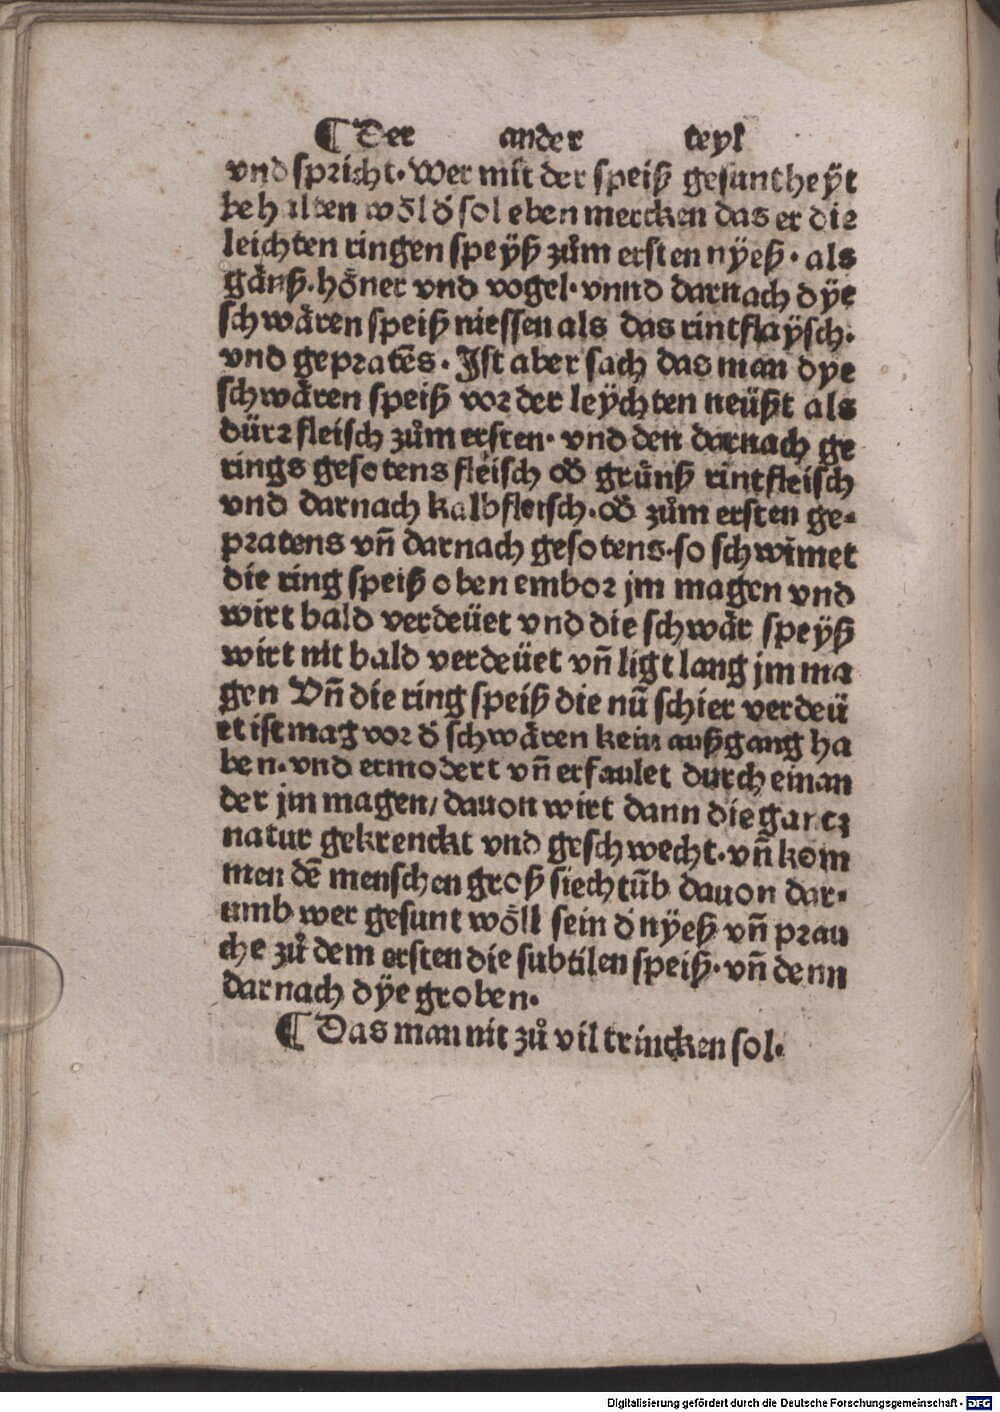 ¶ Der ander teyl
vnd spricht. Wer mit der speiß gesuntheÿt
behalten wöl d̕ sol eben mercken das er die
leichten ringen speÿß zům ersten nÿeß. als
gänß. höner vnd vogel. vnnd darnach dÿe
schwären speiß niessen als das rintflaÿsch.
vnd gepratēs. Ist aber sach das man dye
schwären speiß vor der leÿchten neüßt als
dürr fleisch zům ersten. vnd den darnach ge
rings gesotens fleisch od̕ grünß rintfleisch
vnd darnach kalbfleisch. od̕ zům ersten ge-
pratens vn̄ darnach gesotens. so schwimet
die ring speiß oben embor jm magen vnd
wirt bald verdeüet vnd die schwär speÿß
wirt nit bald verdeüet vn̄ ligt lang jm ma
gen Vn̄ die ring speiß die nū schier verdeü
et ist mag vor d̕ schwären kein außgang ha
ben. vnd ermodert vn̄ erfaulet durch einan
der jm magen/ dauon wirt dann die gantz
natur gekrenckt vnd geschwecht. vn̄ kom
men dē menschen groß siechtūb dauon dar-
umb wer gesunt wöll sein d̕ nÿeß vn̄ prau
che zů dem ersten die subtilen speiß. vn̄ denn
darnach dÿe groben.
¶ Das man nit zů vil trincken sol.
Digitalisierung gefördert durch die Deutsche Forschungsgemeinschaft - DFG